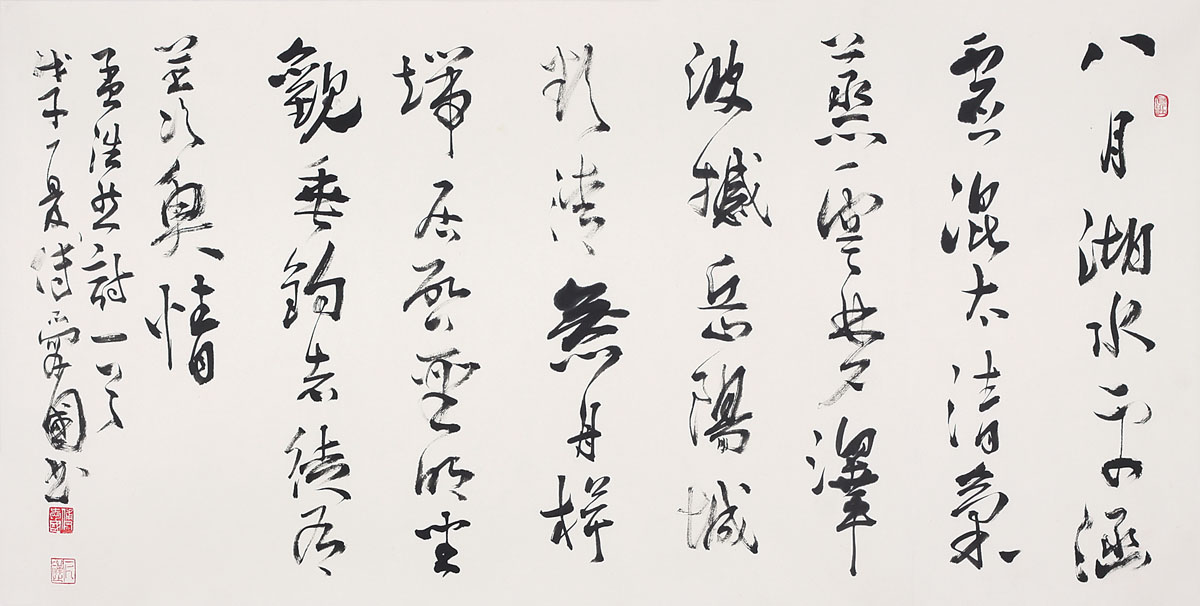 八月湖水平涵
虚混太清氣
蒸雲夢澤
波撼岳陽城
欲濟無舟楫
端居恥聖明坐
觀垂釣者徒有
羡魚情
孟浩然詩一首
戊子夏傅愛國书